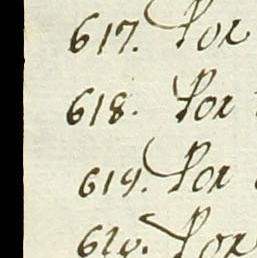 617. Por
618. Por
619. Por
620. Por